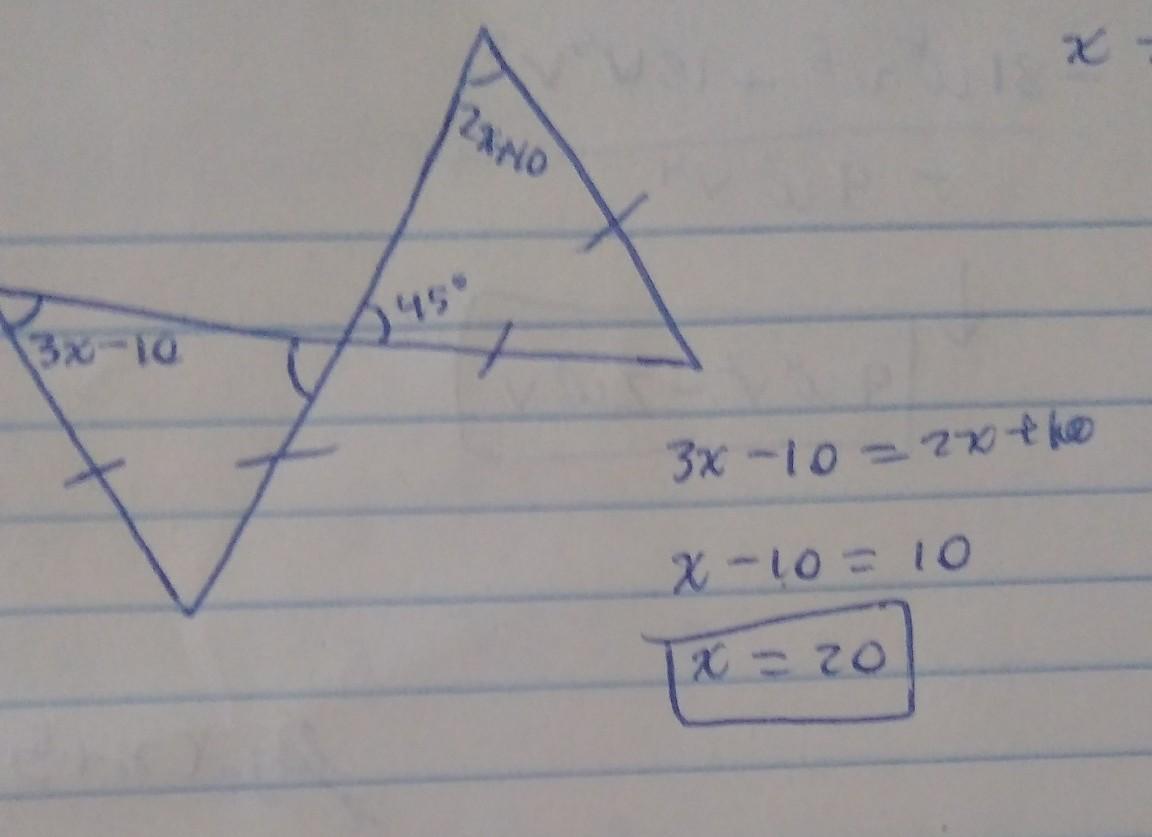 x =
2x+10
45°
3x-10
3x - 10 = 2x + 10
x - 10 = 10
x = 20